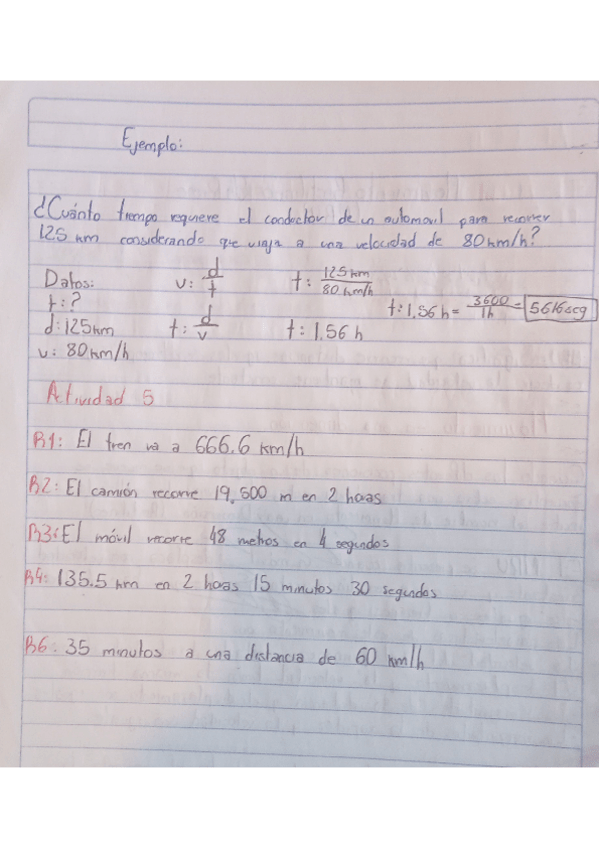 Ejemplo:
¿Cuánto tiempo requiere el conductor de un automovil para recorrer
125 km considerando que viaja a una velocidad de 80 km/h?
Datos:
t: ?
d: 125 km
v: 80 km/h
v: d/t
t: d/v
t: 125 km / 80 km/h
t: 1.56 h
t: 1.56 h = 3600 / 1h = 5616 seg
Actividad 5
R1: El tren va a 666.6 km/h
R2: El camión recorre 19,500 m en 2 horas
R3: El móvil recorre 48 metros en 4 segundos
R4: 135.5 km en 2 horas 15 minutos 30 segundos
R6: 35 minutos a una distancia de 60 km/h